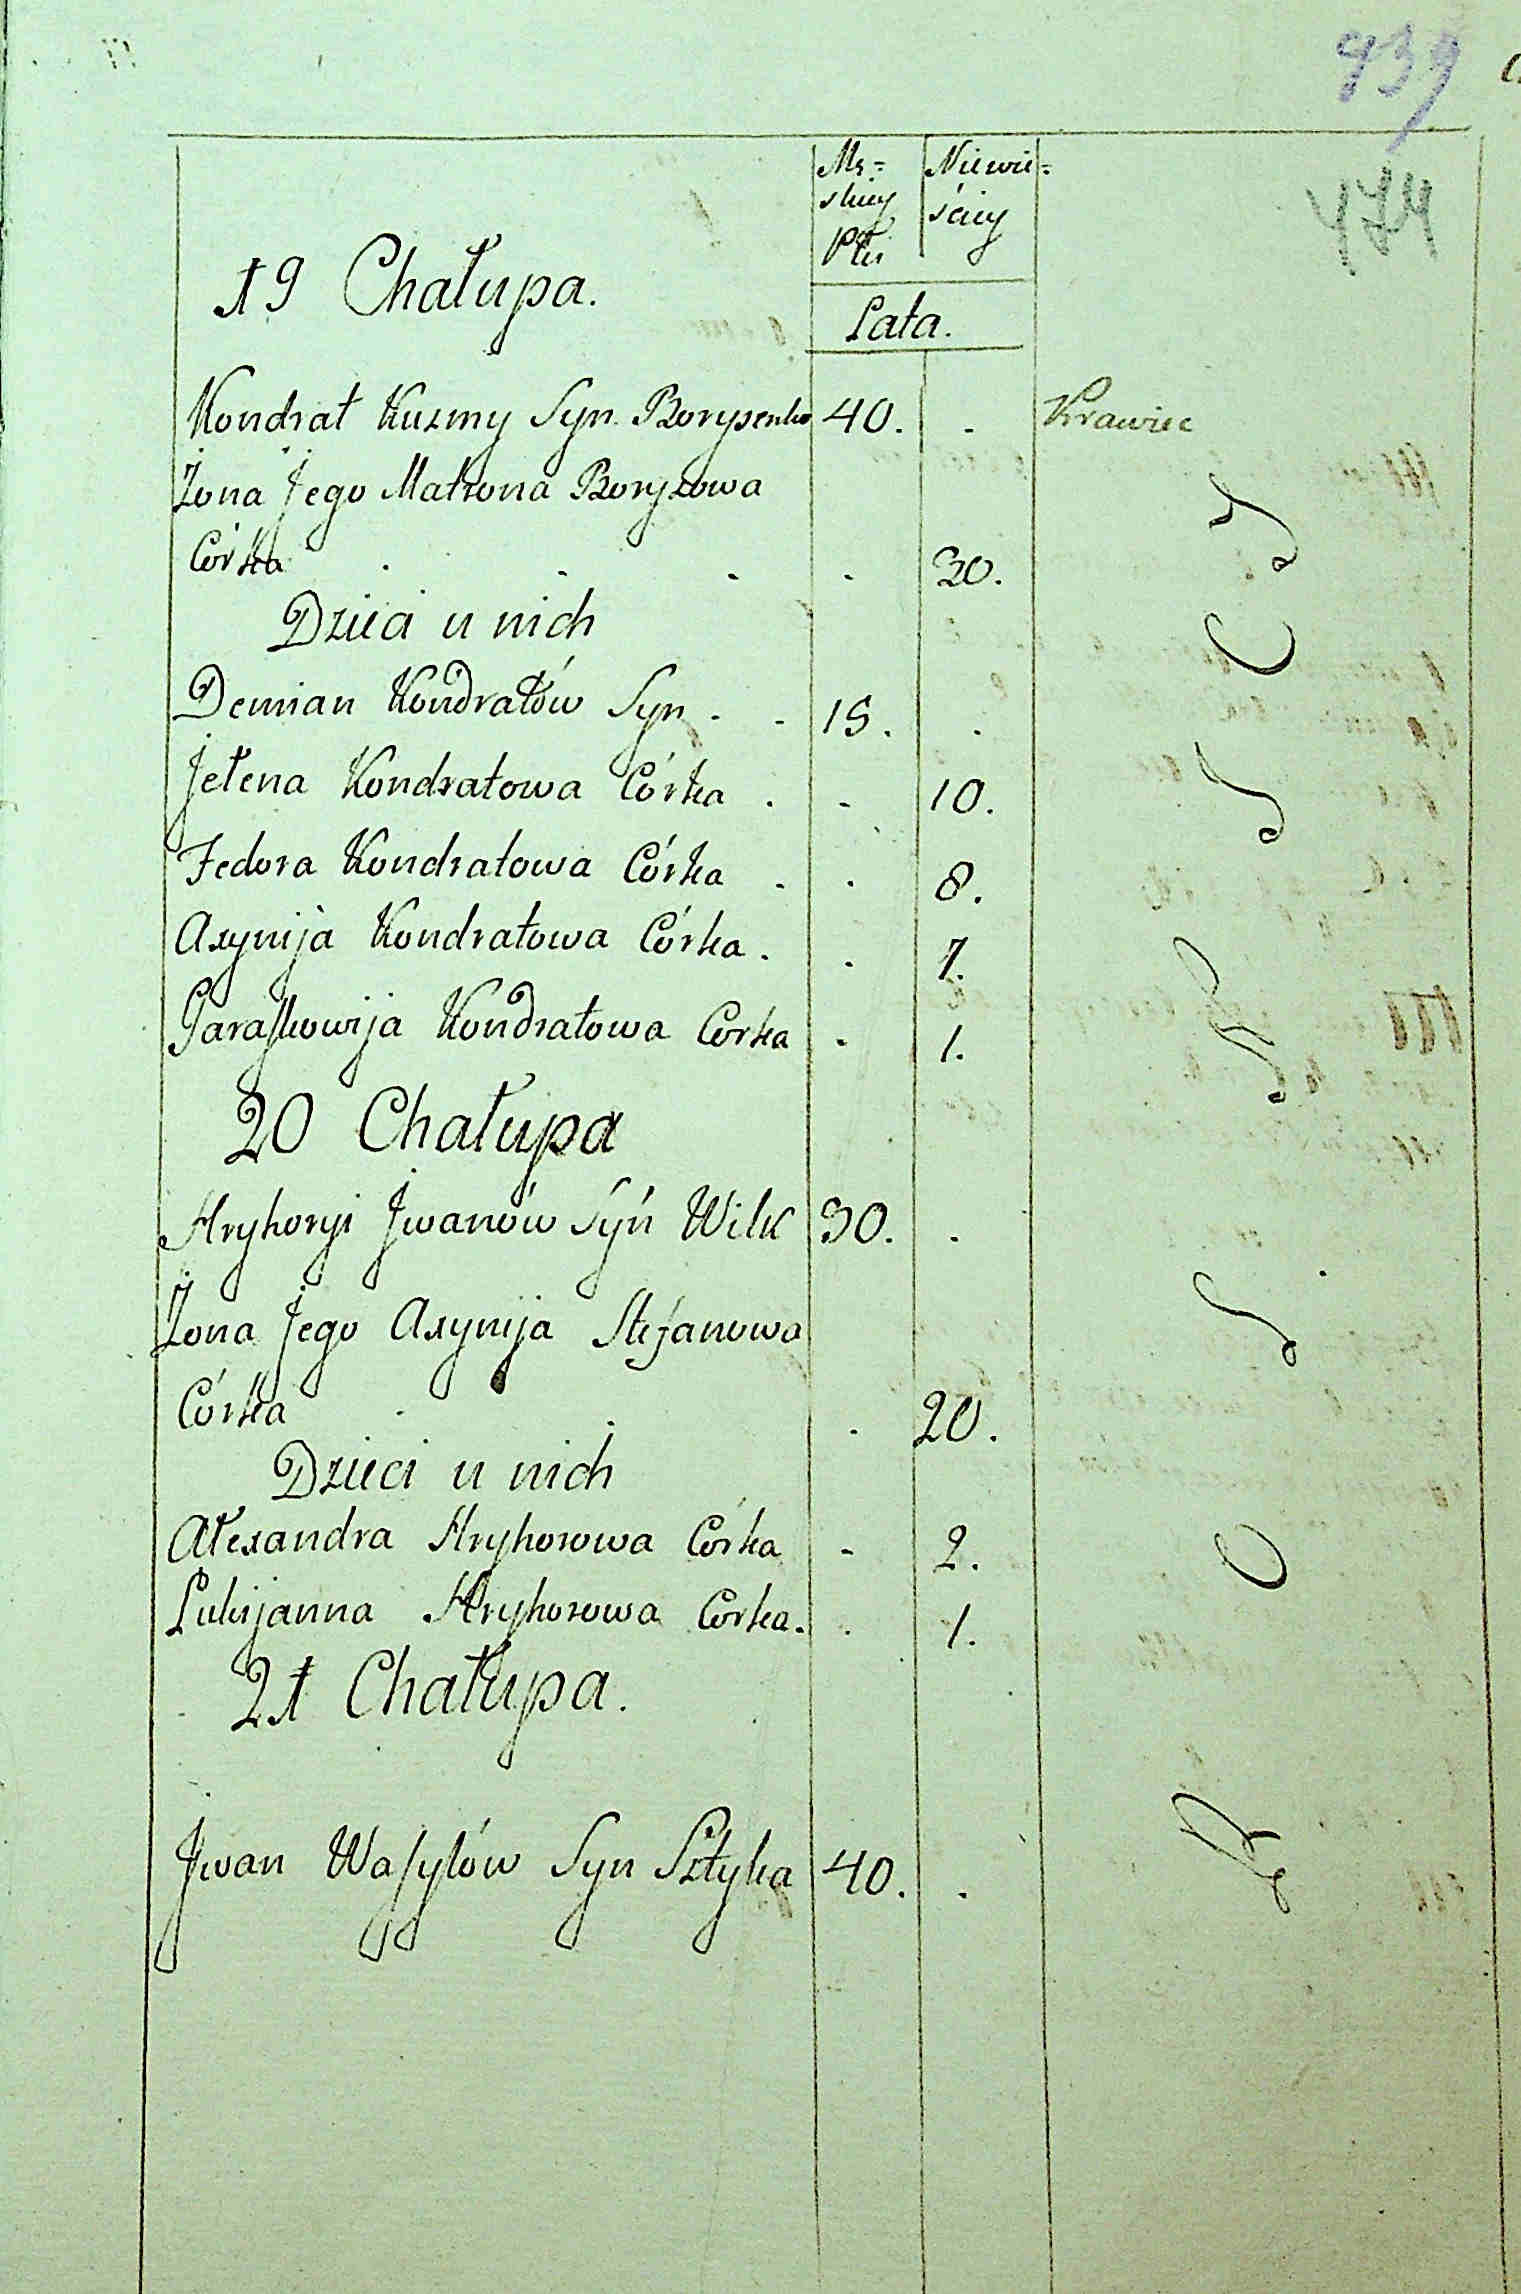 939
474
Mę=
skiey
Płci
Niewie=
ściey
19 Chałupa.
Lata.
Kondrat Kuzmy Syn Borysenko 40. . Krawiec
Żona Jego Matrona Boryzowa
Córka . . . . 30.
Dzieci u nich
Demian Kondratów Syn . . 15. .
Jełena Kondratowa Córka . . 10.
Fedora Kondratowa Córka . . 8.
Axynija Kondratowa Córka . . 7.
Paraskowija Kondratowa Corka . 1.
20 Chałupa
Hryhoryi Jwanów Syn Wilk 30. .
Żona Jego Axynija Stefanowa
Córka . . . 20.
Dzieci u nich
Ałexandra Hryhorowa Córka . 2.
Lukijanna Hryhorowa Corka . . 1.
21 Chałupa.
Jwan Wasylów Syn Sztyka 40. .